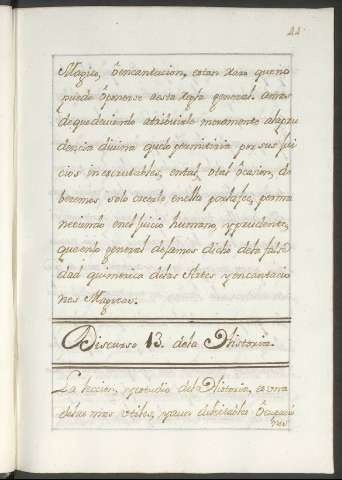 44
Magico, ô encantacion, es tan raro que no
puede ôponerse aesta regla general. antes
de que deviendo atribuirle meramente ala pru
dencia divina que lo permitiria por sus jui
cios inescrutables, en tal, ô tal ôcasion, de
beremos solo creerlo en ella por la fee, perma
neciendo en el juicio humano, y prudente,
que en lo general dejamos dicho dela false
dad quimerica delas Artes y encantacio
nes Magicas.
Discurso 13. dela Historia.
La leccion, y estudio dela Historia, es vna
delas mas vtiles, y aun deleitables ôcupacio
nes